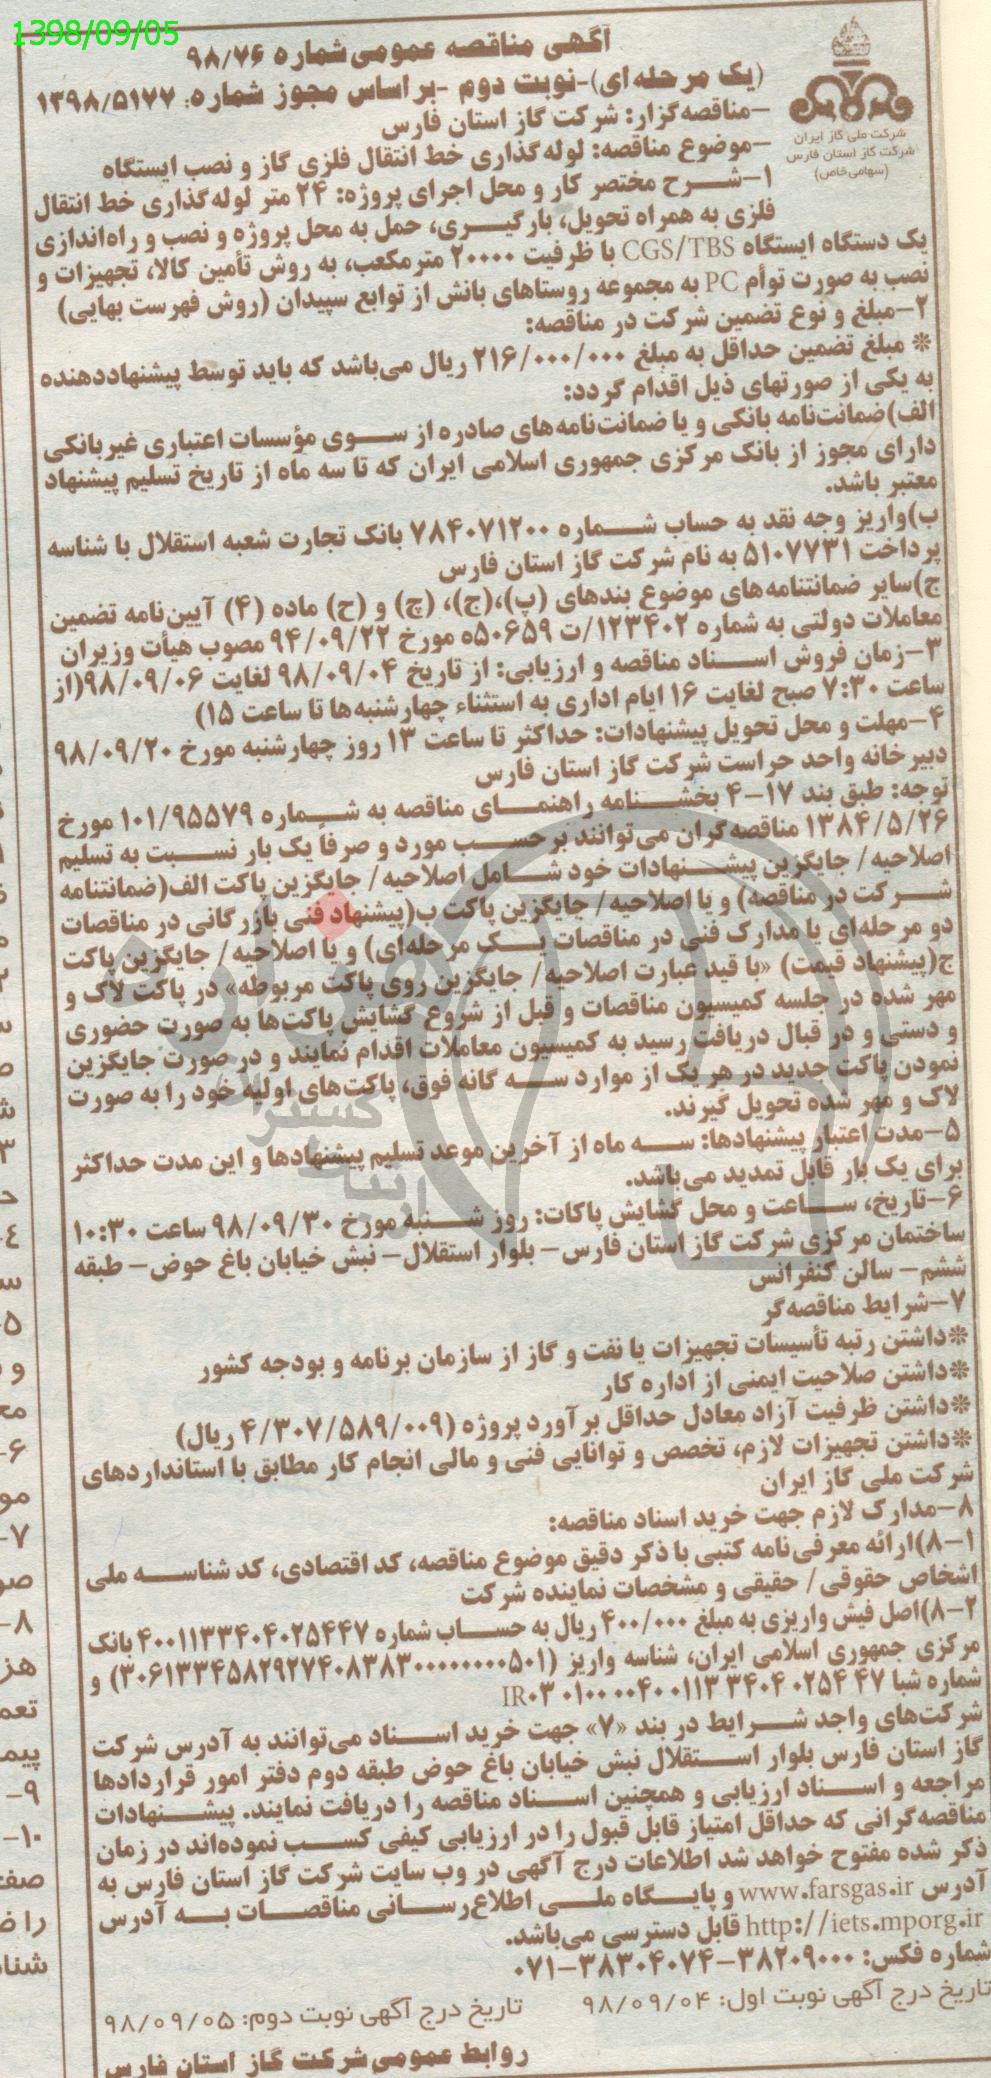 1398/09/05
آگهی مناقصه عمومی شماره ۹۸/۷۶
(یک مرحله‌ای)-نوبت دوم -بر اساس مجوز شماره: ۱۳۹۸/۵۱۷۷
شرکت ملی گاز ایران
شرکت گاز استان فارس
(سهامی خاص)
-مناقصه‌گزار: شرکت گاز استان فارس
-موضوع مناقصه: لوله‌گذاری خط انتقال فلزی گاز و نصب ایستگاه
۱-شرح مختصر کار و محل اجرای پروژه: ۲۴ متر لوله‌گذاری خط انتقال
فلزی به همراه تحویل، بارگیری، حمل به محل پروژه و نصب و راه‌اندازی
یک دستگاه ایستگاه CGS/TBS با ظرفیت ۲۰۰۰۰ مترمکعب، به روش تأمین کالا، تجهیزات و
نصب به صورت توأم PC به مجموعه روستاهای بانش از توابع سپیدان (روش فهرست بهایی)
۲-مبلغ و نوع تضمین شرکت در مناقصه:
* مبلغ تضمین حداقل به مبلغ ۲۱۶/۰۰۰/۰۰۰ ریال می‌باشد که باید توسط پیشنهاددهنده
به یکی از صورتهای ذیل اقدام گردد:
الف)ضمانت‌نامه بانکی و یا ضمانت‌نامه‌های صادره از سوی مؤسسات اعتباری غیربانکی
دارای مجوز از بانک مرکزی جمهوری اسلامی ایران که تا سه ماه از تاریخ تسلیم پیشنهاد
معتبر باشد.
ب)واریز وجه نقد به حساب شماره ۷۸۴۰۷۱۲۰۰ بانک تجارت شعبه استقلال با شناسه
پرداخت ۵۱۰۷۷۳۱ به نام شرکت گاز استان فارس
ج)سایر ضمانتنامه‌های موضوع بندهای (پ)،(ج)، (چ) و (ح) ماده (۴) آیین‌نامه تضمین
معاملات دولتی به شماره ۱۲۳۴۰۲/ت ۵۰۶۵۹ه مورخ ۹۴/۰۹/۲۲ مصوب هیأت وزیران
۳-زمان فروش اسناد مناقصه و ارزیابی: از تاریخ ۹۸/۰۹/۰۴ لغایت ۹۸/۰۹/۰۶(از
ساعت ۷:۳۰ صبح لغایت ۱۶ ایام اداری به استثناء چهارشنبه‌ها تا ساعت ۱۵)
۴-مهلت و محل تحویل پیشنهادات: حداکثر تا ساعت ۱۳ روز چهارشنبه مورخ ۹۸/۰۹/۲۰
دبیرخانه واحد حراست شرکت گاز استان فارس
توجه: طبق بند ۱۷-۴ بخشنامه راهنمای مناقصه به شماره ۱۰۱/۹۵۵۷۹ مورخ
۱۳۸۴/۵/۲۶ مناقصه‌گران می‌توانند برحسب مورد و صرفاً یک بار نسبت به تسلیم
اصلاحیه/ جایگزین پیشنهادات خود شامل اصلاحیه/ جایگزین پاکت الف(ضمانتنامه
شرکت در مناقصه) و یا اصلاحیه/ جایگزین پاکت ب(پیشنهاد فنی بازرگانی در مناقصات
دو مرحله‌ای یا مدارک فنی در مناقصات یک مرحله‌ای) و یا اصلاحیه/ جایگزین پاکت
ج(پیشنهاد قیمت) «با قید عبارت اصلاحیه/ جایگزین روی پاکت مربوطه» در پاکت لاک و
مهر شده در جلسه کمیسیون مناقصات و قبل از شروع گشایش پاکت‌ها به صورت حضوری
و دستی و در قبال دریافت رسید به کمیسیون معاملات اقدام نمایند و در صورت جایگزین
نمودن پاکت جدید در هر یک از موارد سه گانه فوق، پاکت‌های اولیه خود را به صورت
لاک و مهر شده تحویل گیرند.
۵-مدت اعتبار پیشنهادها: سه ماه از آخرین موعد تسلیم پیشنهادها و این مدت حداکثر
برای یک بار قابل تمدید می‌باشد.
۶-تاریخ، ساعت و محل گشایش پاکات: روز شنبه مورخ ۹۸/۰۹/۳۰ ساعت ۱۰:۳۰
ساختمان مرکزی شرکت گاز استان فارس- بلوار استقلال- نبش خیابان باغ حوض- طبقه
ششم- سالن کنفرانس
۷-شرایط مناقصه‌گر
*داشتن رتبه تأسیسات تجهیزات یا نفت و گاز از سازمان برنامه و بودجه کشور
*داشتن صلاحیت ایمنی از اداره کار
*داشتن ظرفیت آزاد معادل حداقل برآورد پروژه (۴/۳۰۷/۵۸۹/۰۰۹ ریال)
*داشتن تجهیزات لازم، تخصص و توانایی فنی و مالی انجام کار مطابق با استانداردهای
شرکت ملی گاز ایران
۸-مدارک لازم جهت خرید اسناد مناقصه:
۱-۸)ارائه معرفی‌نامه کتبی با ذکر دقیق موضوع مناقصه، کد اقتصادی، کد شناسه ملی
اشخاص حقوقی/ حقیقی و مشخصات نماینده شرکت
۲-۸)اصل فیش واریزی به مبلغ ۴۰۰/۰۰۰ ریال به حساب شماره ۴۰۰۱۱۳۳۴۰۴۰۲۵۴۴۷ بانک
مرکزی جمهوری اسلامی ایران، شناسه واریز (۳۰۶۱۳۳۴۵۸۲۹۲۷۴۰۸۳۸۳۰۰۰۰۰۰۰۰۰۵۰۱) و
شماره شبا IR۰۳ ۰۱۰۰ ۰۰۴۰ ۰۱۱۳ ۳۴۰۴ ۰۲۵۴ ۴۷
شرکت‌های واجد شرایط در بند «۷» جهت خرید اسناد می‌توانند به آدرس شرکت
گاز استان فارس بلوار استقلال نبش خیابان باغ حوض طبقه دوم دفتر امور قراردادها
مراجعه و اسناد ارزیابی و همچنین اسناد مناقصه را دریافت نمایند. پیشنهادات
مناقصه‌گرانی که حداقل امتیاز قابل قبول را در ارزیابی کیفی کسب نموده‌اند در زمان
ذکر شده مفتوح خواهد شد اطلاعات درج آگهی در وب سایت شرکت گاز استان فارس به
آدرس www.farsgas.ir و پایگاه ملی اطلاع‌رسانی مناقصات به آدرس
http://iets.mporg.ir قابل دسترسی می‌باشد.
شماره فکس: ۳۸۲۰۹۰۰۰-۳۸۳۰۴۰۷۴-۰۷۱
تاریخ درج آگهی نوبت اول: ۹۸/۰۹/۰۴ تاریخ درج آگهی نوبت دوم: ۹۸/۰۹/۰۵
روابط عمومی شرکت گاز استان فارس